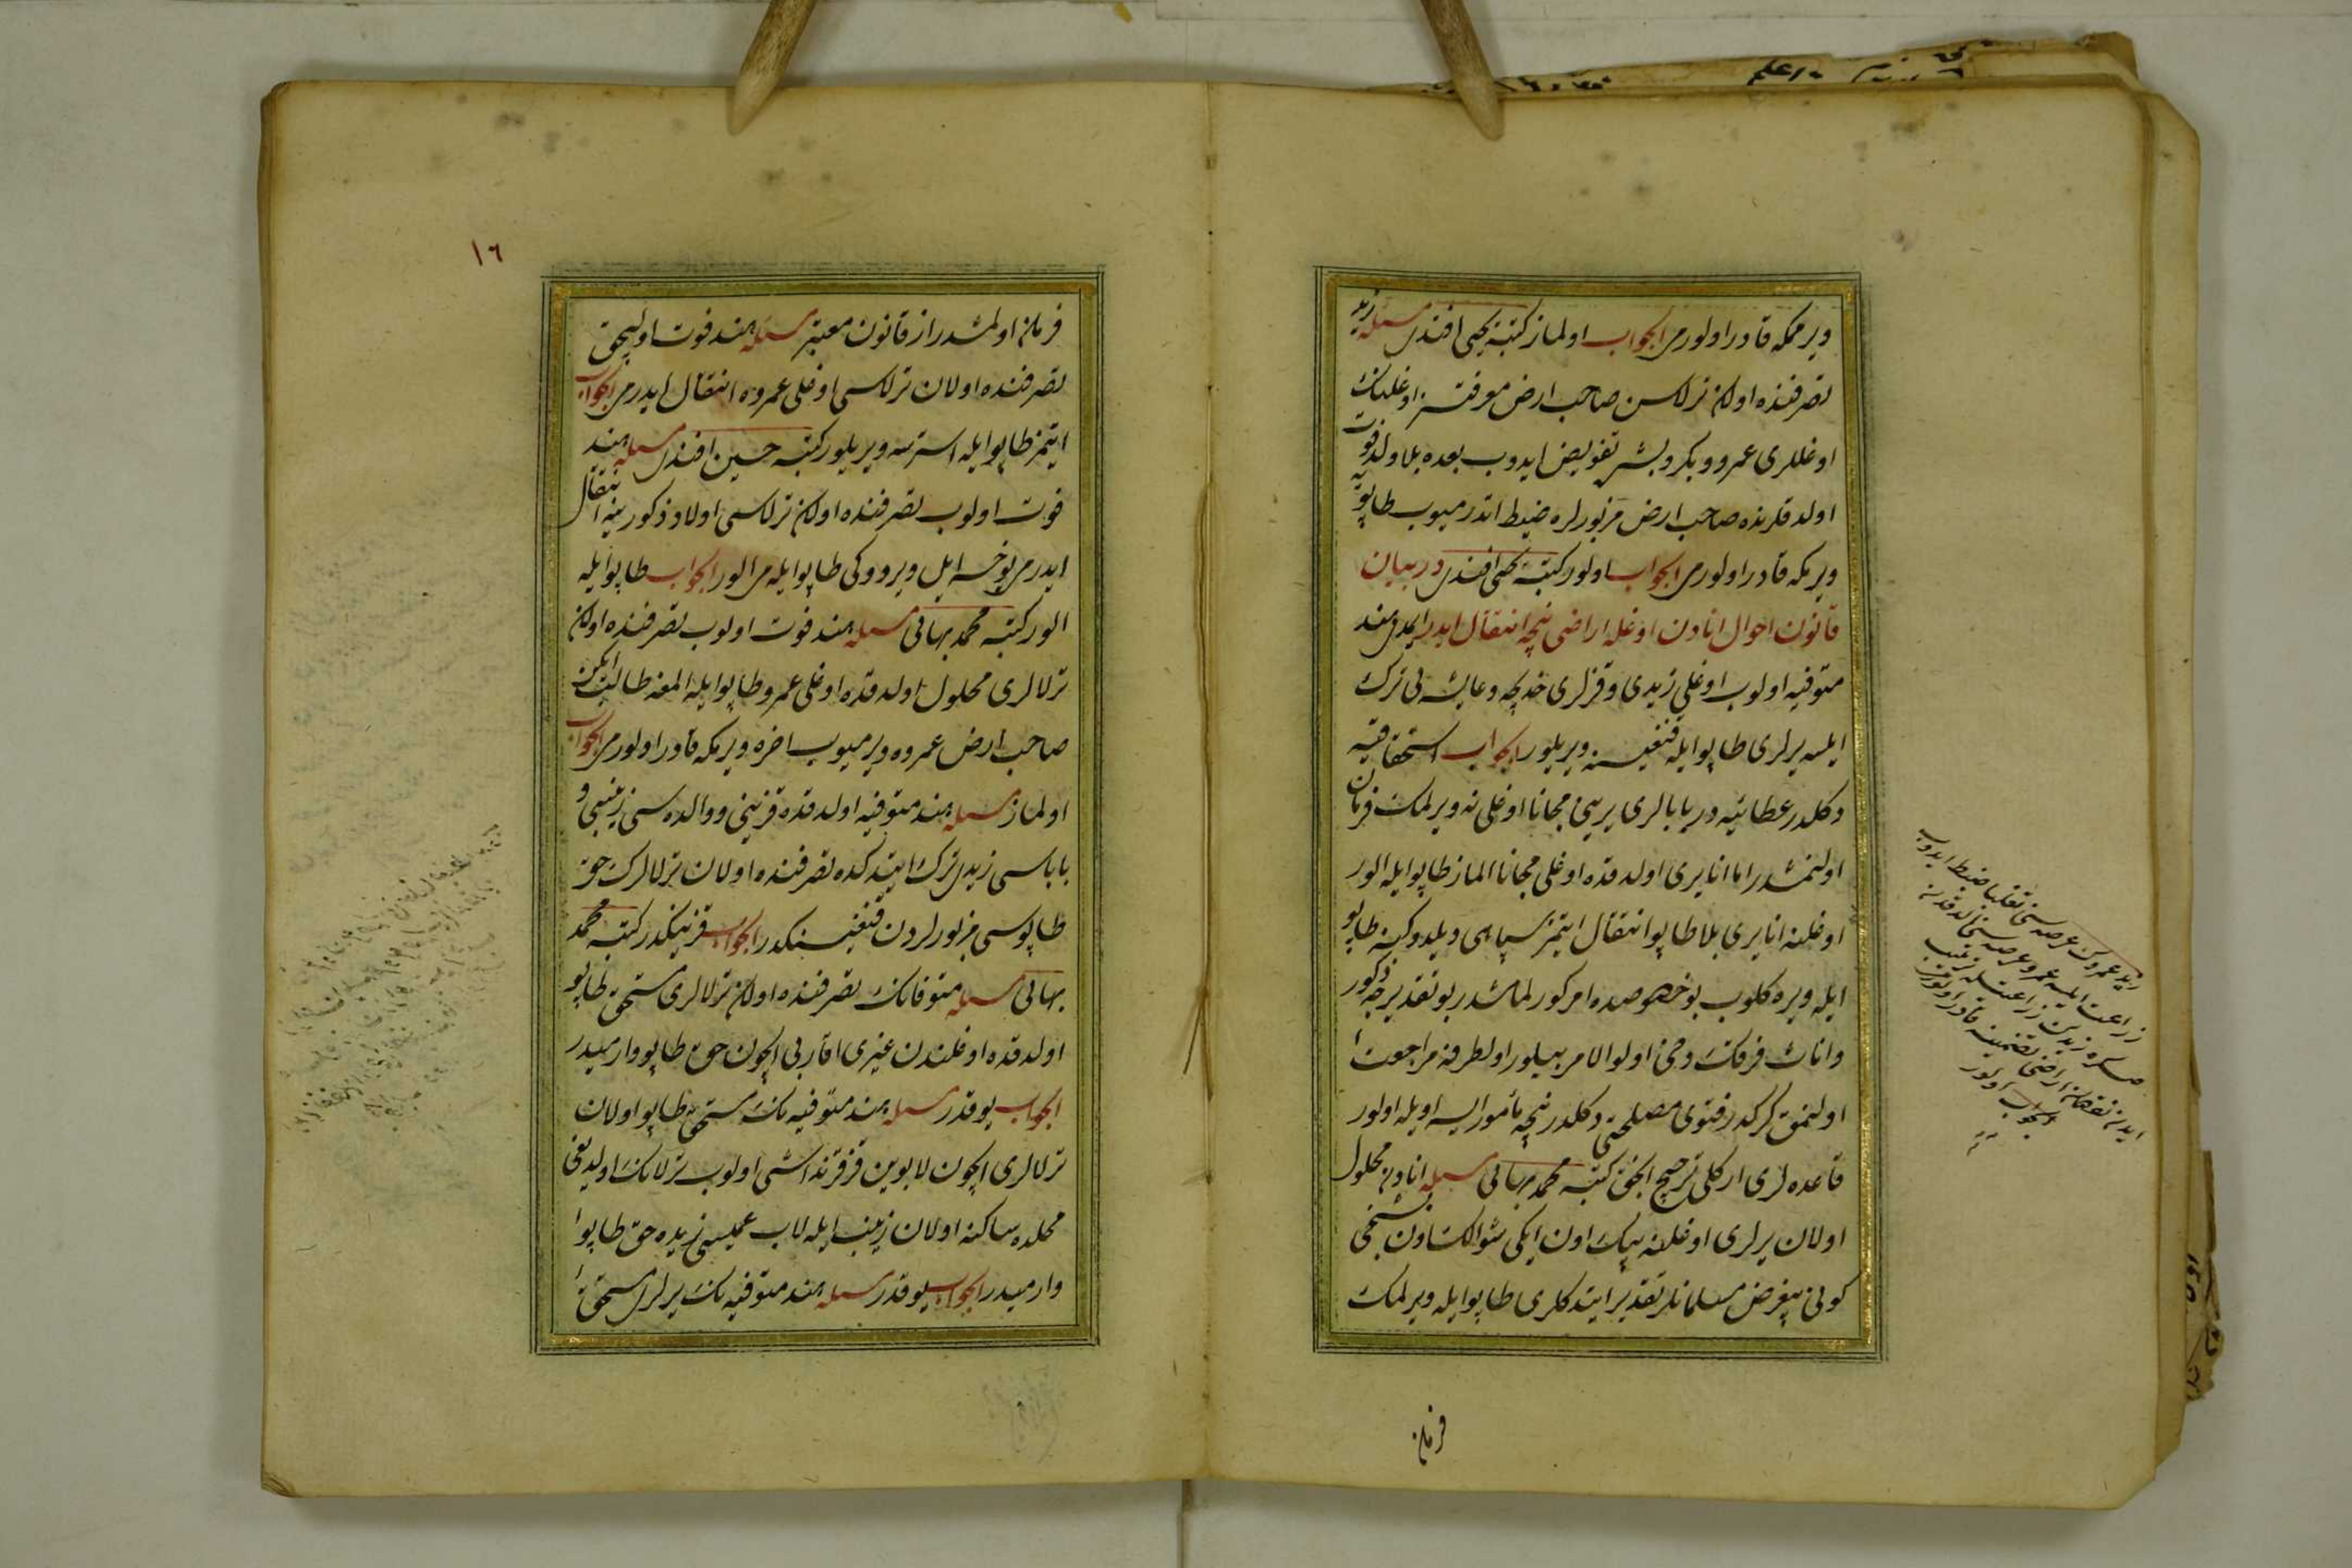 ویرمكه قادر اولورمی الجواب اولماز كتبه یحیی افندی مسئله زید
تصرفنده اولان ترلاسن صاحب ارض معرفتسز اوغلینك
اوغللری عمرو و بكر و بشره تفویض ایدوب بعده بلا ولد فوت
اولدقلرنده صاحب ارض مزبورلره ضبط اتدرمیوب طاپویه
ویرمكه قادر اولورمی الجواب اولور كتبه یحیی افندی در بیان
قانون احوال انادن اوغله اراضی نیچه انتقال ایدر ایمدی هند
متوفیه اولوب اوغلی زیدی و قزلری خدیجه و عایشه یی ترك
ایلسه یرلری طاپو ایله قنغیسنه ویریلور الجواب استحقاقیه
دكلدر عطائیه در بابالری یرینی مجانا اوغلی نه ویرلمك فرمان
اولنمشدر اما انا یری اولدقده اوغلی مجانا الماز طاپو ایله الور
اوغلنه انا یری بلا طاپو انتقال ایتمز سپاهی دیلدوكینه طاپو
ایله ویره كلوب بو خصوصده امر كورلمامشدر بو تقدیرجه ذكور
و اناث فرقنك دخی اولوالامر بیلور اول طرفه مراجعت
اولنمق كركدر فتوی مصلحتی دكلدر نیچه مأمور ایسه اویله اولور
قاعده لری اركلی ترجیح انجق كتبه محمد بهائی مسئله انادن محلول
اولان یرلری اوغلنه بیك اون ایكی شوالنك اون بشنجی
كونی بیغرض مسلمانلر تقدیر ایتدكلری طاپو ایله ویرلمك
فرمان
زید عمروك عرصه سنی تغلبا ضبط ایدوب
زراعت ایلسه عمرو عرصه سنی الدقدنصكره زیدین زراعتله ترتب
ایدن نقصان ارضی تضمینه قادر اولورمی
الجواب اولور
١٦
فرمان اولمشدر از قانون معتبر مسئله هند فوت اولیجق
تصرفنده اولان ترلاسی اوغلی عمروه انتقال ایدرمی الجواب
ایتمز طاپو ایله استرسه ویریلور كتبه حسین افندی مسئله هند
فوت اولوب تصرفنده اولان ترلاسی اولاد ذكورینه انتقال
ایدرمی یوخسه ایل ویردوكی طاپو ایله می الور الجواب طاپو ایله
الور كتبه محمد بهائی مسئله هند فوت اولوب تصرفنده اولان
ترلالری محلول اولدقده اوغلی عمرو طاپو ایله المغه طالب ایكن
صاحب ارض عمروه ویرمیوب اخره ویرمكه قادر اولورمی الجواب
اولماز مسئله هند متوفیه اولدقده قزینی و والده سی زینبی و
باباسی زیدی ترك ایتدكده تصرفنده اولان ترلالرك حق
طاپوسی مزبورلردن قنغیسنكدر الجواب قزینكدر كتبه محمد
بهائی مسئله متوفانك تصرفنده اولان ترلالری مستحق طاپو
اولدقده اوغلندن غیری اقاربی ایچون حق طاپو وارمیدر
الجواب یوقدر مسئله هند متوفیه نك مستحق طاپو اولان
ترلالری ایچون لابوین قز قرنداشی اولوب ترلانك اولدیغی
محلده ساكنه اولان زینب ایله لاب عمیسی زیده حق طاپو
وارمیدر الجواب یوقدر مسئله هند متوفیه نك یرلری مستحق